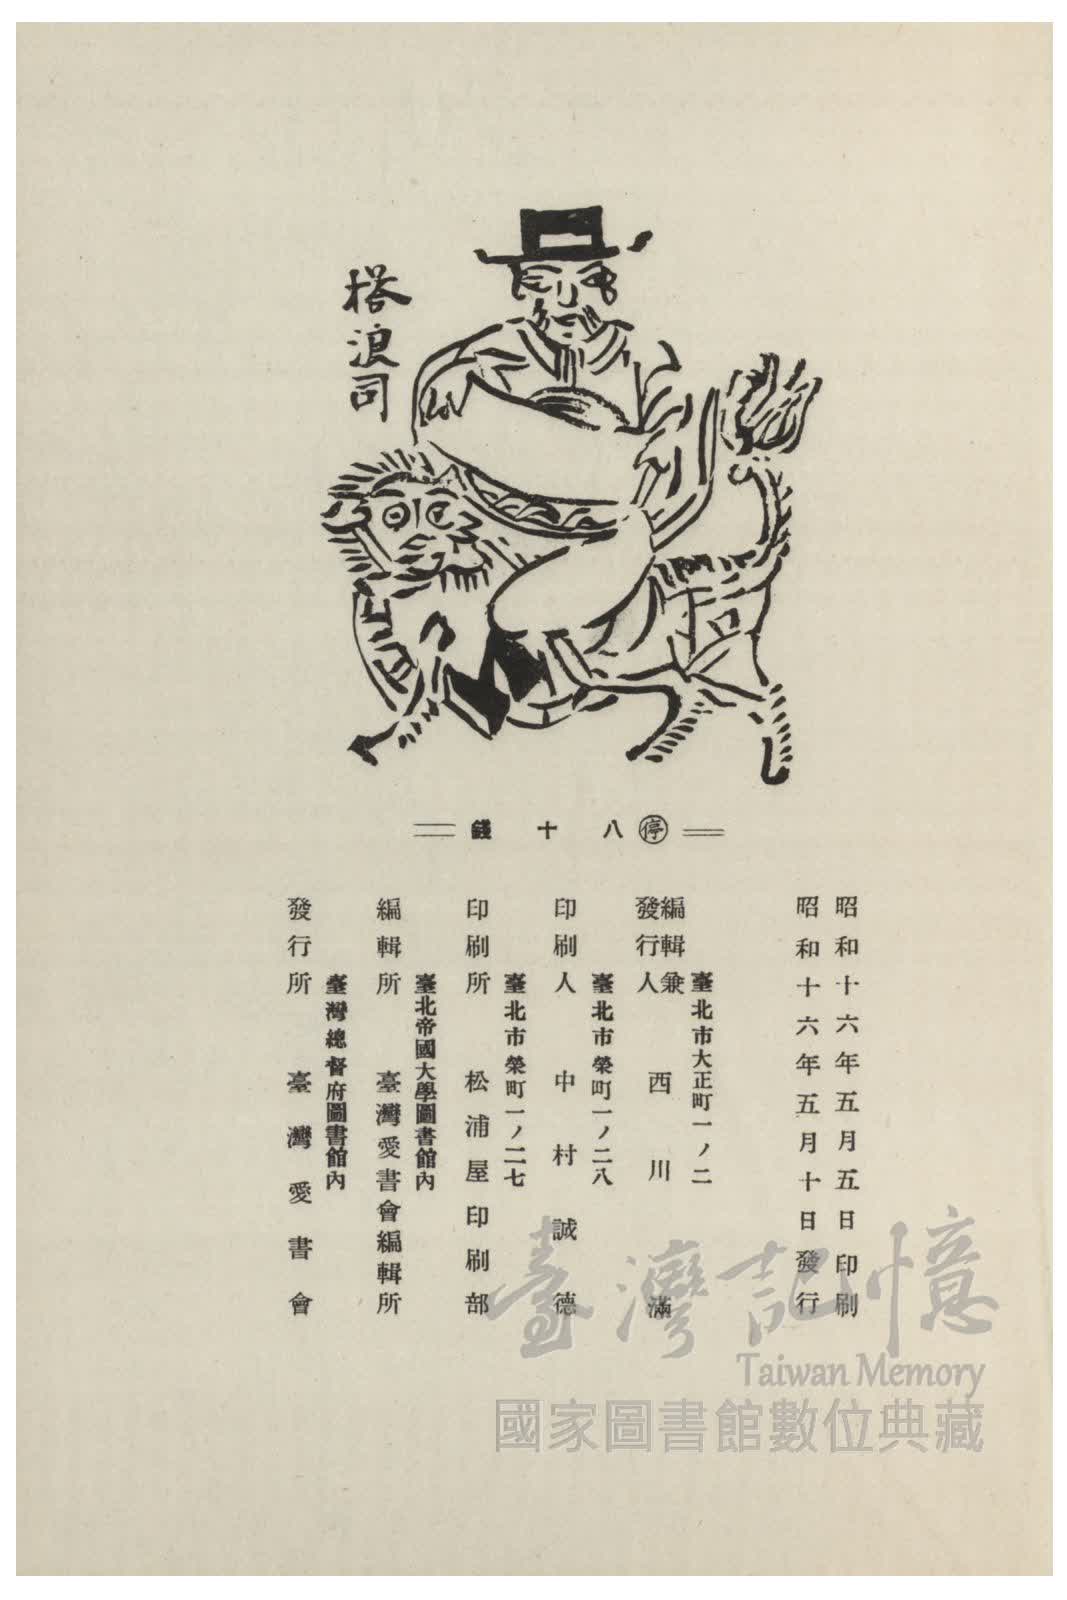 榙浪司
停 八十錢
昭和十六年五月五日印刷
昭和十六年五月十日發行
臺北市大正町一ノ二
編輯兼
發行人 西川滿
臺北市榮町一ノ二八
印刷人 中村誠德
臺北市榮町一ノ二七
印刷所 松浦屋印刷部
臺北帝國大學圖書館內
編輯所 臺灣愛書會編輯所
臺灣總督府圖書館內
發行所 臺灣愛書會
臺灣記憶
Taiwan Memory
國家圖書館數位典藏